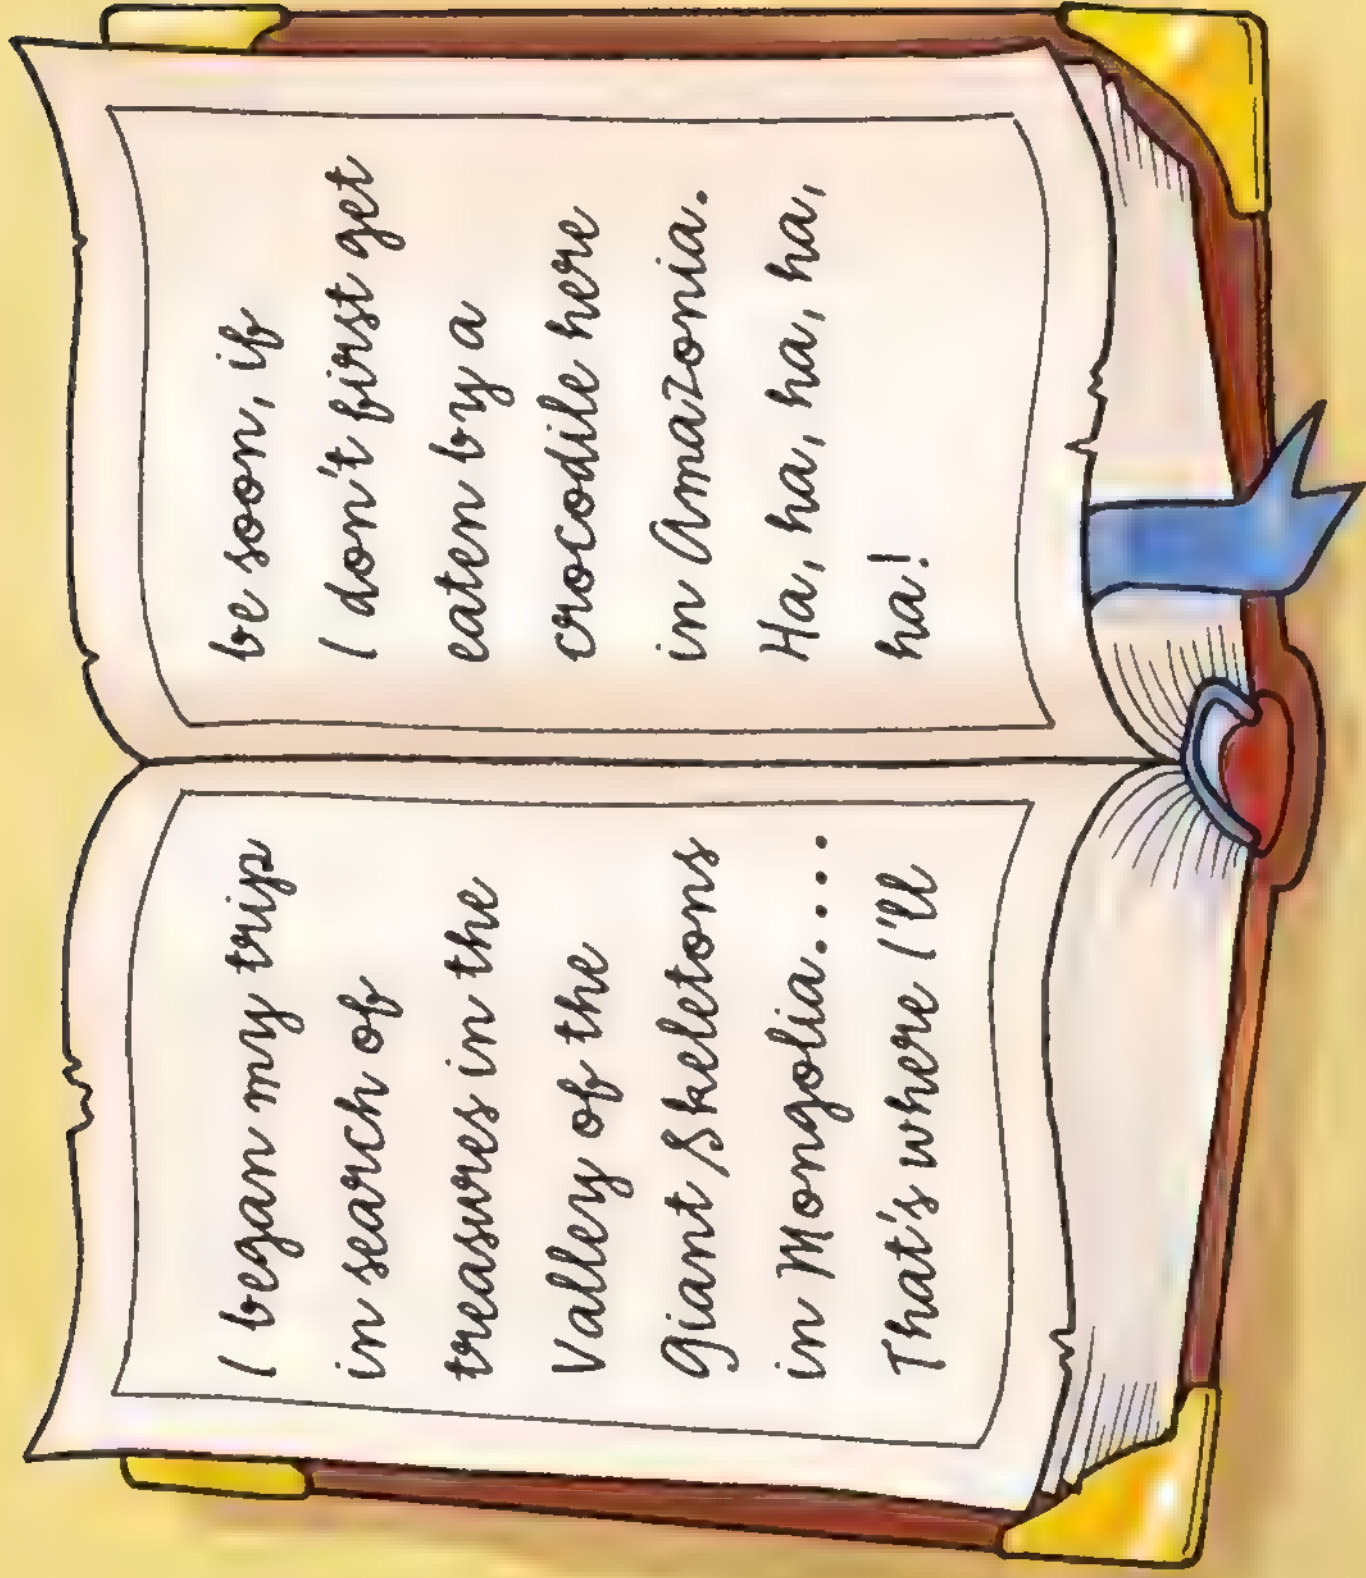 I began my trip
in search of
treasures in the
Valley of the
Giant Skeletons
in Mongolia....
That's where I'll
be soon, if
I don't first get
eaten by a
crocodile here
in Amazonia.
Ha, ha, ha, ha, ha,
ha!